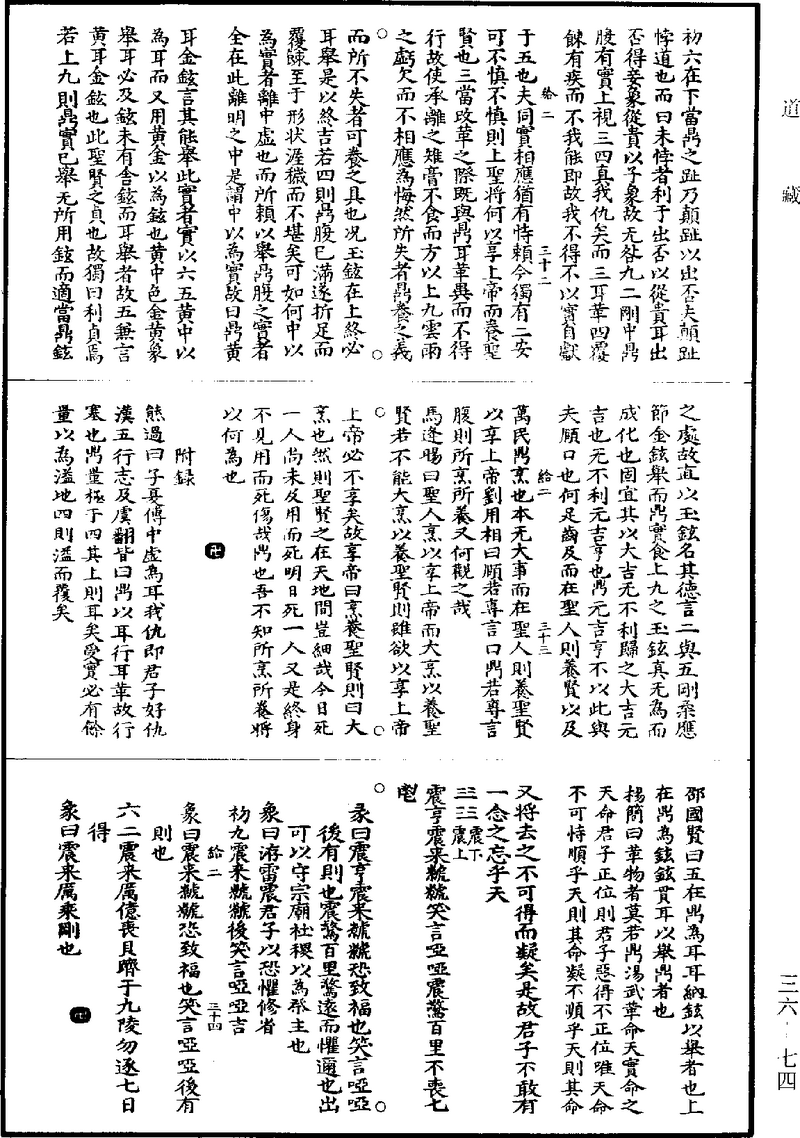 道藏
初六在下當鼎之趾乃顛趾以出否夫顛趾
悖道也而曰未悖者利于出否以從貴耳出
否得妾象從貴以子象故无咎九二剛中鼎
腹有實上視三四真我仇矣而三耳革四覆
餗有疾而不我能即故我不得不以實自獻
給二
三十二
于五也夫同實相應猶有恃賴今獨有二安
可不慎不慎則上聖將何以享上帝而養聖
賢也三當改革之際既與鼎耳革異而不得
行故使承離之雉膏不食而方以上九雲雨
之虧欠而不相應為悔然所失者鼎養之義
而所不失者可養之具也况玉鉉在上終必
耳舉是以終吉若四則鼎腹已滿遂折足而
覆餗至于形狀渥穢而不堪矣可如何中以
為實者離中虛也而所賴以舉鼎腹之實者
全在此離明之中是謂中以為實故曰鼎黃
耳金鉉言其能舉此實者實以六五黃中以
為耳而又用黃金以為鉉也黃中色金黃象
舉耳必及鉉未有舍鉉而耳舉者故五兼言
黃耳金鉉也此聖賢之貞也故獨曰利貞焉
若上九則鼎實已舉无所用鉉而適當鼎鉉
之處故直以玉鉉名其德言二與五剛柔應
節金鉉舉而鼎實食上九之玉鉉真无為而
成化也固宜其以大吉无不利歸之大吉元
吉也无不利元吉亨也鼎元吉亨不以此與
夫頤口也何足齒及而在聖人則養賢以及
給二
三十三
萬民鼎烹也本无大事而在聖人則養聖賢
以享上帝劉用相曰頤若專言口鼎若專言
腹則所烹所養又何觀之哉
馬逢暘曰聖人烹以享上帝而大烹以養聖
賢若不能大烹以養聖賢則雖欲以享上帝
上帝必不享矣故享帝曰烹養聖賢則曰大
烹也然則聖賢之在天地間豈細哉今日死
一人尚未及用而死明日死一人又是終身
不見用而死傷哉鼎也吾不知所烹所養將
以何為也
附録
熊過曰子夏傳中虛為耳我仇即君子好仇
漢五行志及虞翻皆曰鼎以耳行耳革故行
塞也鼎量極于四其上則耳矣受實必有餘
量以為溢地四則溢而覆矣
邵國賢曰五在鼎為耳耳納鉉以舉者也上
在鼎為鉉鉉貫耳以舉鼎者也
楊簡曰革物者莫若鼎湯武革命天實命之
天命君子正位則君子惡得不正位唯天命
不可恃順乎天則其命凝不順乎天則其命
又將去之不可得而凝矣是故君子不敢有
一念之忘乎天
☳☳震下震上
震亨震来虩虩笑言啞啞震驚百里不喪七
鬯
彖曰震亨震来虩虩恐致福也笑言啞啞
後有則也震驚百里驚遠而懼邇也出
可以守宗廟社稷以為祭主也
象曰洊雷震君子以恐懼修省
初九震来虩虩後笑言啞啞吉
給二
三十四
象曰震来虩虩恐致福也笑言啞啞後有
則也
六二震来厲億喪貝躋于九陵勿逐七日
得
象曰震来厲乘剛也
三六-七四